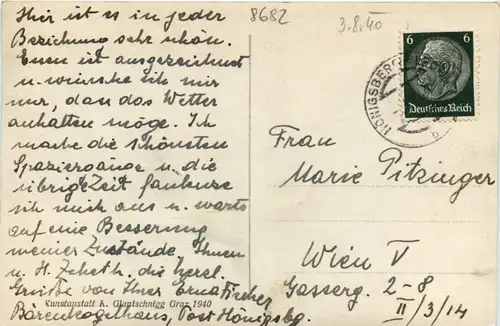 8682
3.8.40
Hier ist es in jeder
Beziehung sehr schön.
Essen ist ausgezeichnet
u. wünsche ich mir
nur, dass das Wetter
anhalten möge. Ich
mache die schönsten
Spaziergänge u. die
übrige Zeit faulenze
ich mich aus u. warte
auf eine Besserung
meiner Zustände. Ihnen
u. H. die herzl.
Grüße von Ihrer Erna Fischer
Kunstanstalt K. Glantschnigg Graz 1940
Bärenkogelhaus, Post Hönigsbg.
6 6
Deutsches Reich
HÖNIGSBERG
b
Frau
Marie Pitzinger
Wien V
Gasserg. 2-8
II/3/14